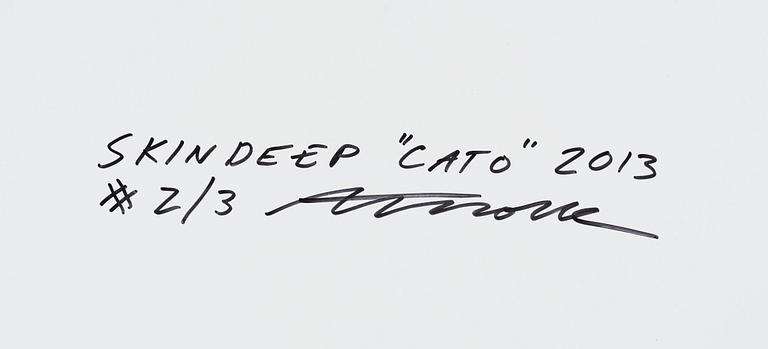 SKINDEEP "CATO" 2013
# 2/3